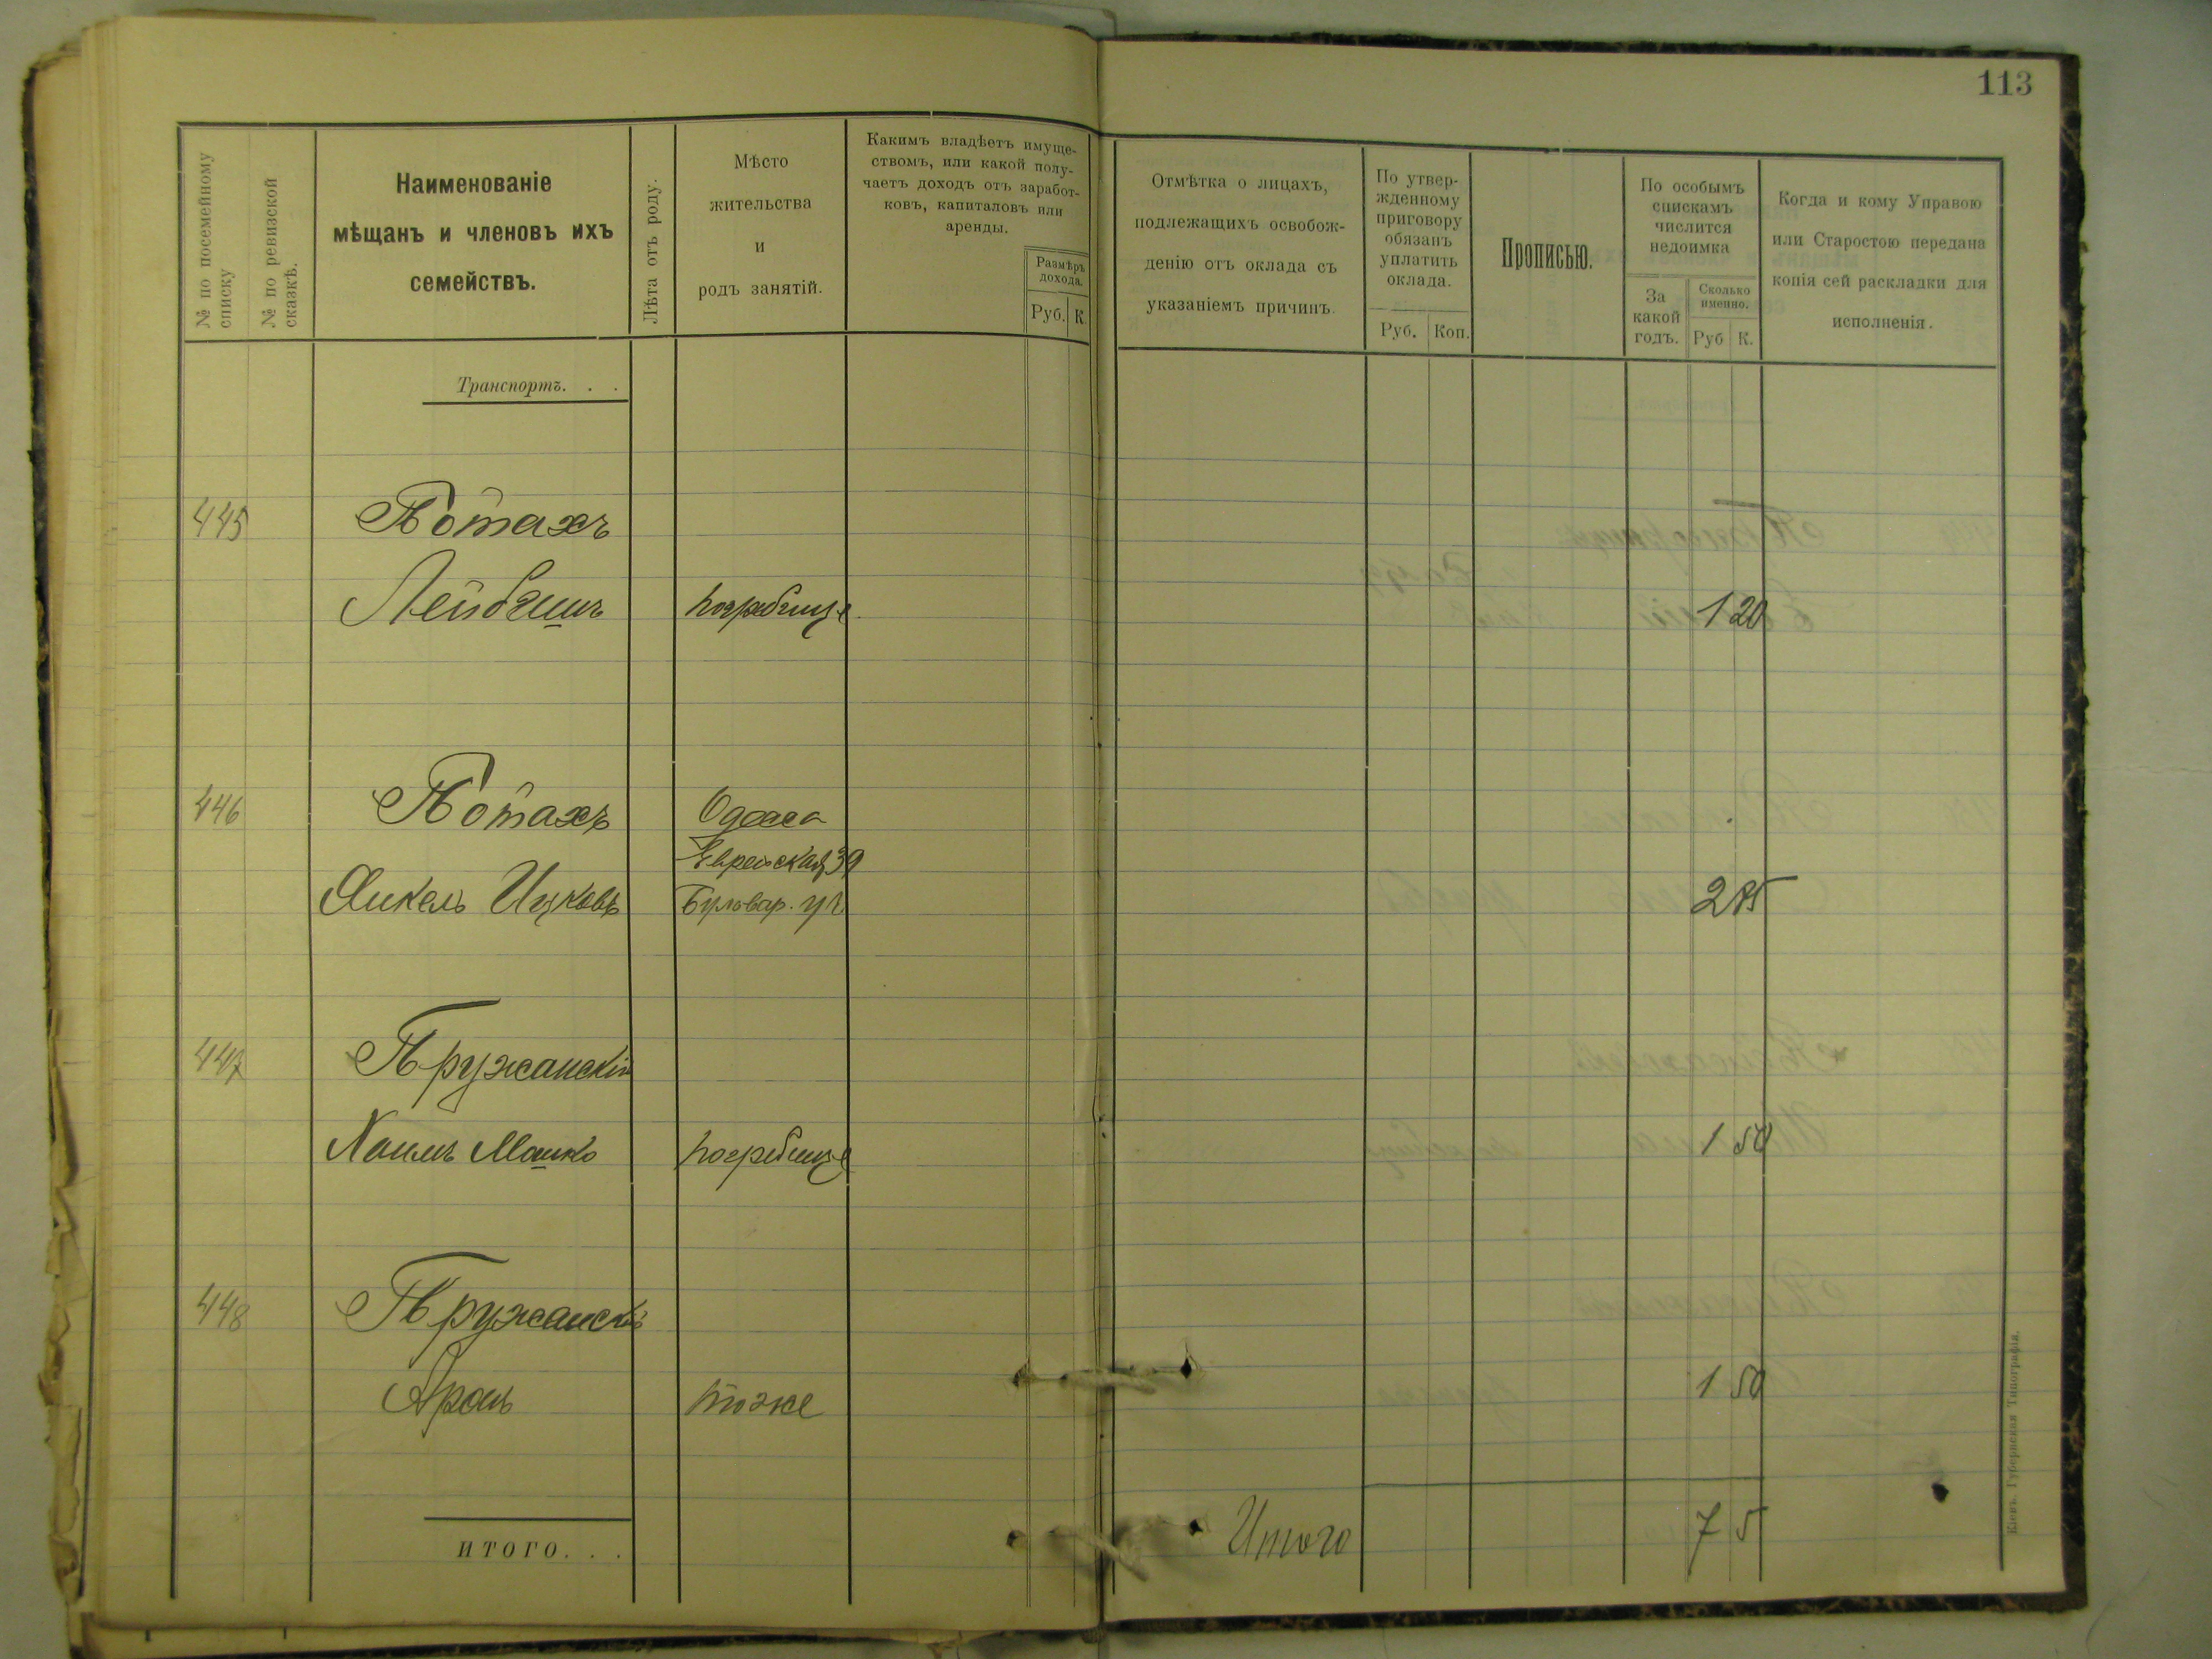 113
№ по посемейному
списку
№ по ревизской
сказкѣ.
Наименованіе
мѣщанъ и членовъ ихъ
семействъ.
Лѣта отъ роду.
Мѣсто
жительства
и
родъ занятій.
Какимъ владѣетъ имуще-
ствомъ, или какой полу-
чаетъ доходъ отъ заработ-
ковъ, капиталовъ или
аренды.
Размѣръ
дохода.
Руб. К.
Отмѣтка о лицахъ,
подлежащихъ освобож-
денію отъ оклада съ
указаніемъ причинъ.
По утвер-
жденному
приговору
обязанъ
уплатить
оклада.
Руб. Коп.
Прописью.
По особымъ
спискамъ
числится
недоимка
За
какой
годъ.
Сколько
именно.
Руб К.
Когда и кому Управою
или Старостою передана
копія сей раскладки для
исполненія.
Транспортъ. . .
445 Потахъ
Лейбишъ Погребище 1 20
446 Потахъ Одесса
Еврейская 39
Янкель Ицковъ Бульвар. уч. 2 85
447 Пружанскій
Хаимъ Мошко Погребище 1 50
448 Пружанскій
Аронъ тоже 1 50
ИТОГО. . .
Итого 7 5
Кіевъ. Губернская Типографія.